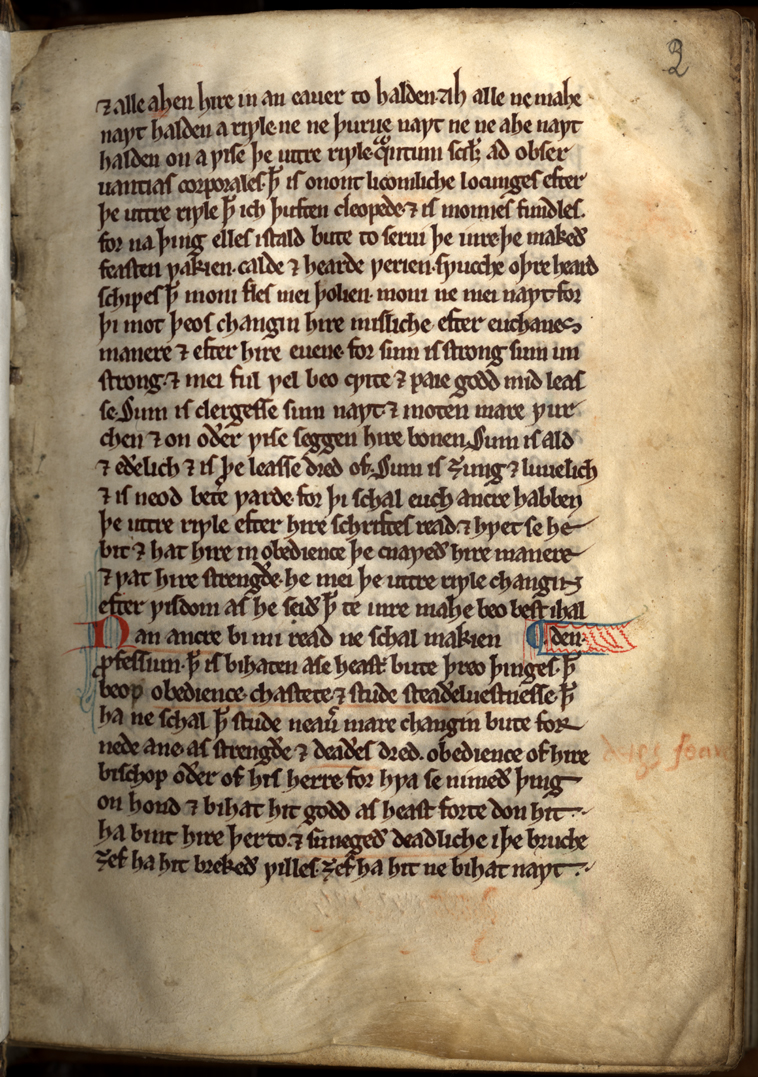 2
⁊ alle ahen hire in an eauer to halden. ah alle ne mahe
nayt halden a riƿle. ne ne þurue nayt ne ne ahe nayt
halden on a ƿise þe uttre riƿle. Q̃ntum scił ad obser
uantias corporales. ꝥ is onont licomliche locunges efter
þe uttre riƿle ꝥ ich þuften cleopede. ⁊ is monnes fundles.
for na þing elles istald bute to serui þe inre. þe makeð
feasten ƿakien. calde ⁊ hearde ƿerien. sƿucche oþre heard
schipes ꝥ moni fles mei þolien. moni ne mei nayt. for
þi mot þeos changin hire misliche efter euchanes
manere ⁊ efter hire euene. for sum is strong sum un
strong. ⁊ mei ful ƿel beo cƿite ⁊ paie godd mid leas
se. Sum is clergesse sum nayt ⁊ moten mare ƿur
chen ⁊ on oðer ƿise seggen hire bonen. Sum is ald
⁊ eðelich ⁊ is þe leasse dred of. Sum is ȝung ⁊ liuelich
⁊ is neod betẽ ƿarde. for þi schal euch ancre habben
þe uttre riƿle efter hire schriftes read. ⁊ hƿet se he
bit ⁊ hat hire in obedience þe cnaƿeð hire manere
⁊ ƿat hire strengðe. he mei þe uttre riƿle changin
efter ƿisdom as he seið ꝥ te inre mahe beo best ihal
Nan ancre bi mi read ne schal makien ¶ den.
ꝓfessiun. ꝥ is bihaten ase heast bute þreo þinges. ꝥ
beoð obedience. chastete ⁊ stude steaðeluestnesse. ꝥ
ha ne schal ꝥ stude neaũ mare changin bute for
nede ane. as strengðe ⁊ deaðes dred. obedience of hire
bischop oðer of his herre. for hƿa se nimeð þing
on hond ⁊ bihat hit godd as heast forte don hit.
ha bint hire þerto. ⁊ suneged deadliche i þe bruche
ȝef ha hit brekeð ƿilles. ȝef ha hit ne bihat nayt.